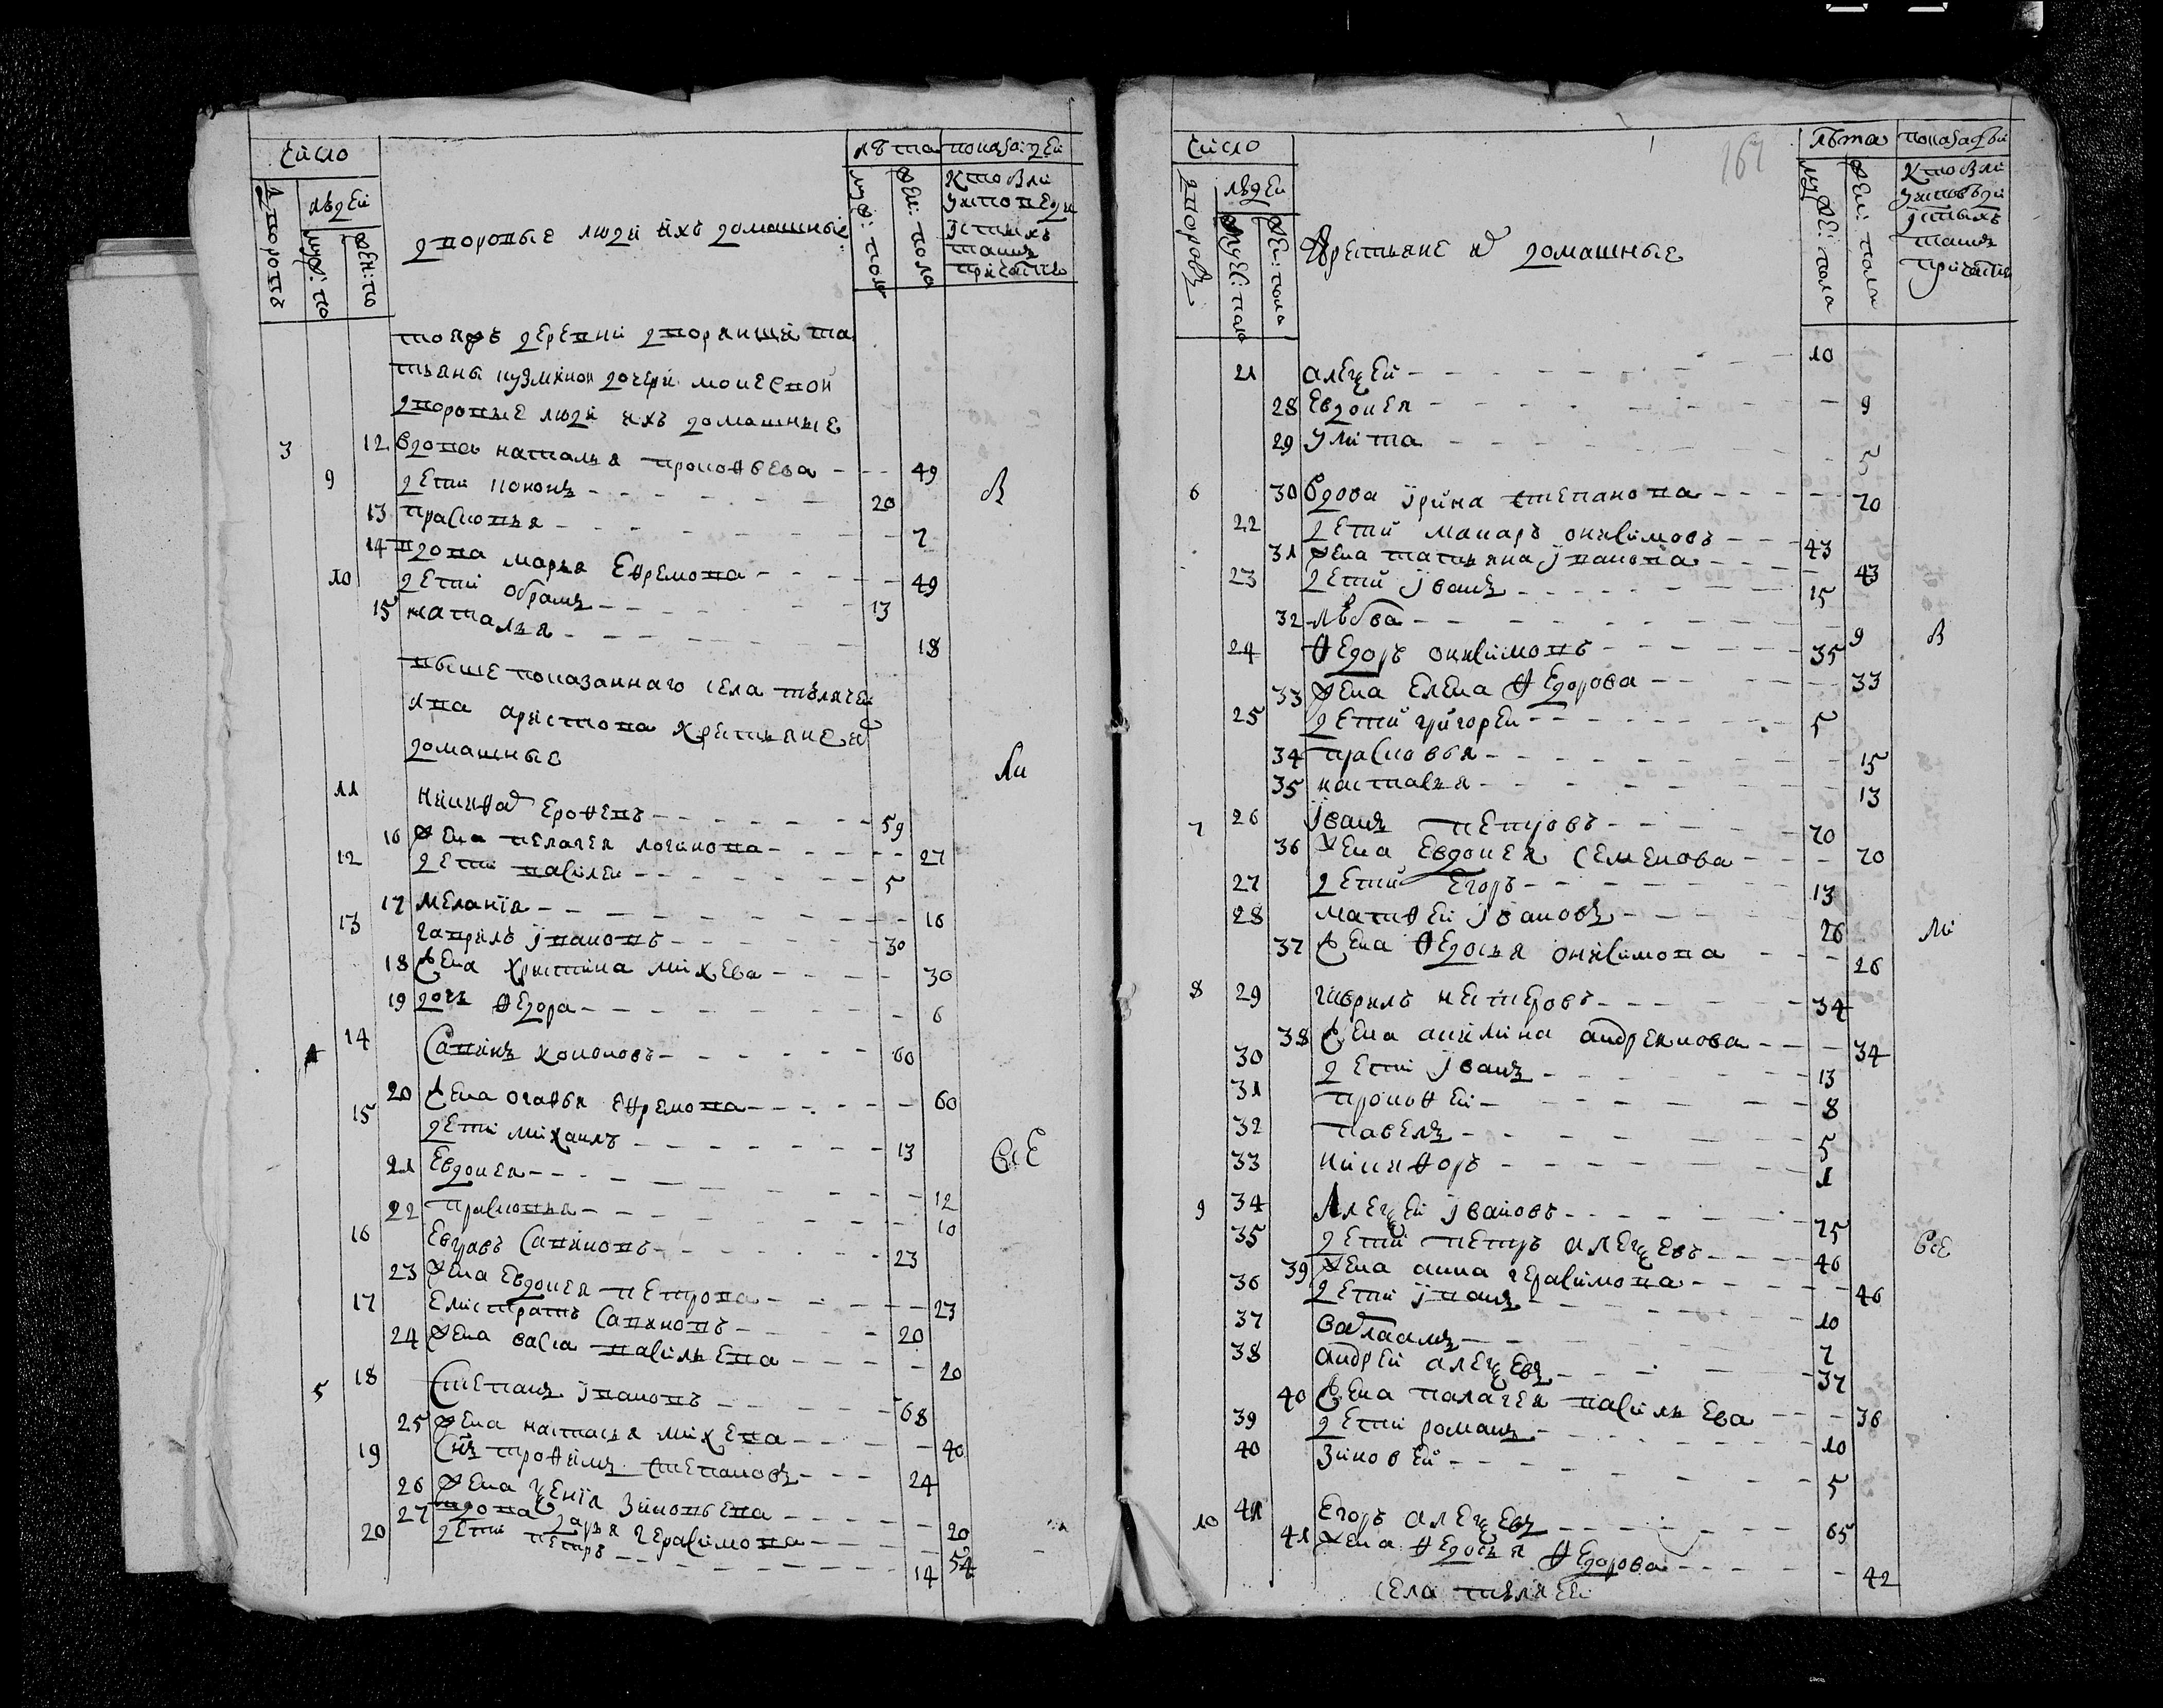 число
дворовъ
людей
муж: по
жен: по
дворовые люди ихъ домашные
лѣта
муж: пола
жен: пола
показа: дей
кто были
у исповеди
i стыхъ
таинъ
причастия
тояжъ деревни дворянки та
тьяны кузминои дочери
дворовые люди ихъ домашные
3 12 вдова наталья прокофьева 49
9 дети кононъ 20
13 прасковья 7
14 вдова марья ефремова 49
10 дети обрамъ 13
15 наталья 18
выше показаннаго села
аристова крестьяне ево
домашные
11 никифоръ ерофеевъ 59
16 жена пелагея логинова 27
12 дети василеи 5
17 меланiя 16
13 гаврилъ iвановъ 30
18 жена христина михеева 30
19 дочь федора 6
4 14 савинъ кононовъ 60
20 жена огафья ефремова 60
15 дети михаилъ 13
все
21 евдокея 12
22 прасковья 10
16 евграфъ савиновъ 23
23 жена евдокея петрова 23
17 елистратъ савиновъ 20
24 жена васса васильева 20
5 18 степанъ iвановъ 68
25 жена настасья михеева 40
19 снъ трофимъ степановъ 24
26 жена ѯенiя зиновьева 20
27 вдова дарья герасимова 52
20 дети петръ 14
число
дворовъ
людей
мужес: пола
жен: пола
крестьяне ево домашные
167
лѣта
мужес: пола
жен: пола
показа дей
кто были
у исповѣди
i стыхъ
таинъ
причастия
21 алеѯей 10
28 евдокея 9
29 улита 5
6 30 вдова iрина степанова 70
22 дети макаръ онисимовъ 43
31 жена татьяна iванова 43
23 дети iванъ 15
32 любва 9
24 федоръ онисимовъ 35
33 жена елена федорова 33
25 дети григореи 5
34 прасковья 15
35 настасья 13
7 26 iванъ петровъ 70
36 жена евдокея семенова 70
27 дети егоръ 13
28 матфеи iвановъ 26
37 жена федосья онисимова 26
8 29 гаврилъ нестеровъ 34
38 жена акилина андреянова 34
30 дети iванъ 13
31 прокофеи 8
32 павелъ 5
33 никифоръ 1
9 34 алеѯеи iвановъ 75
35 дети петръ алеѯеевъ 46
все
39 жена анна герасимова 46
36 дети iванъ 10
37 варлаамъ 7
38 андреи алеѯеевъ 37
40 жена палагея васильева 36
39 дети романъ 10
40 зиновеи 5
10 41 егоръ алеѯеевъ 65
41 жена федосья федорова 42
села